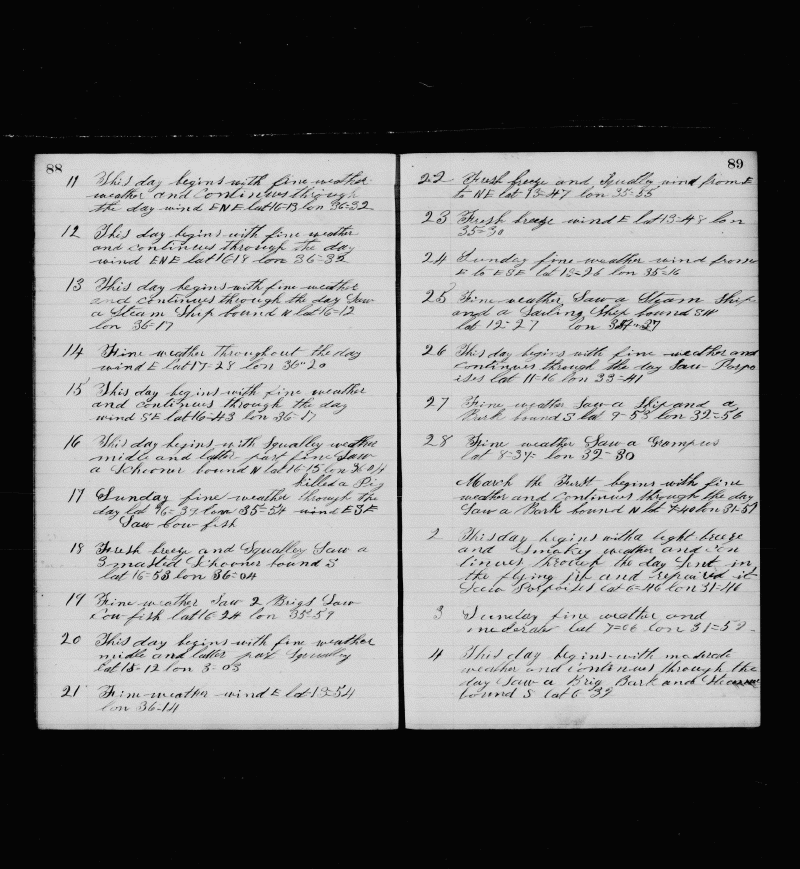 88
11 This day begins with fine weather
weather and continues through
the day wind ENE lat 16-13 lon 36=32
12 This day begins with fine weather
and continues through the day
wind ENE lat 16-18 lon 36=32
13 This day begins with fine weather
and continues through the day Saw
a Steam Ship bound N lat 16-12
lon 36-17
14 Fine weather throughout the day
wind E lat 17-28 lon 36"20
15 This day begins with fine weather
and continues through the day
wind SE lat 16-43 lon 36-17
16 This day begins with Squalley weather
midle and latter part fine Saw
a Schooner bound N lat 16-15 lon 36
killed a Pig
17 Sunday fine weather through the
day lat 16-39 lon 35=54 wind ESE
Saw Cow fish
18 Fresh breeze and Squalley Saw a
3 masted Schooner bound S
lat 16-53 lon 36=04
19 Fine weather Saw 2 Brigs Saw
Cow fish lat 16-24 lon 35=59
20 This day begins with fine weather
midle and latter part Squally
lat 15-12 lon 3-03
21 Fine weather wind E lat 13=54
lon 36-14
89
22 Fresh breeze and Squally wind from E
to NE lat 13=47 lon 35=55
23 Fresh breeze wind E lat 13=48 lon
35=30
24 Sunday fine weather wind from
E to ESE lat 13=26 lon 35=16
25 Fine weather Saw a Steam Ship
and a Sailing Ship bound SW
lat 12-27 lon
26 This day begins with fine weather and
continues through the day Saw Porpo
ises lat 11-16 lon 33-41
27 Fine weather Saw a Ship and a
Bark bound S lat 9-53 lon 32=56
28 Fine weather Saw a Grampus
lat 8-37= lon 32-30
March the First begins with fine
weather and continues through the day
Saw a Bark bound N lat 7-40 lon 31-57
2 This day begins with a light breeze
and Smoky weather and con
tinues through the day Sent in
the flying jib and repaired it
Saw Porpoises lat 6=46 lon 31=46
3 Sunday fine weather and
moderate lat 7=06 lon 31=52
4 This day begins with moderate
weather and continues through the
day Saw a Brig Bark and Steamer
bound S lat 6-39